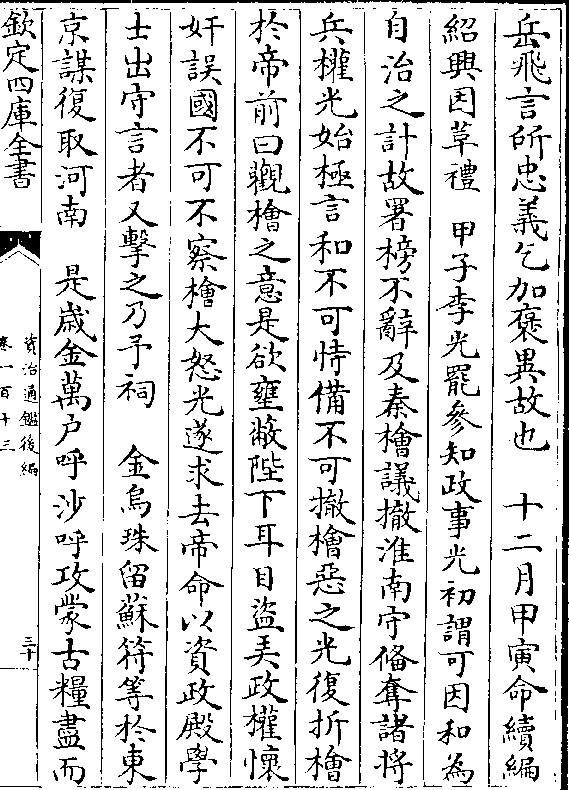 岳飛言所忠義乞加褒異故也　十二月甲寅命續編
紹興因革禮　甲子李光罷參知政事光初謂可因和為
自治之計故署榜不辭及秦檜議撤淮南守備奪諸將
兵權光始極言和不可恃備不可撤檜惡之光復折檜
於帝前曰觀檜之意是欲壅蔽陛下耳目盜弄政權懷
奸誤國不可不察檜大怒光遂求去帝命以資政殿學
士出守言者又擊之乃予祠　金烏珠留蘇符等於東
京謀復取河南　是歲金萬戶呼沙呼攻蒙古糧盡而
欽定四庫全書
資治通鑑後編
卷一百十三
三十